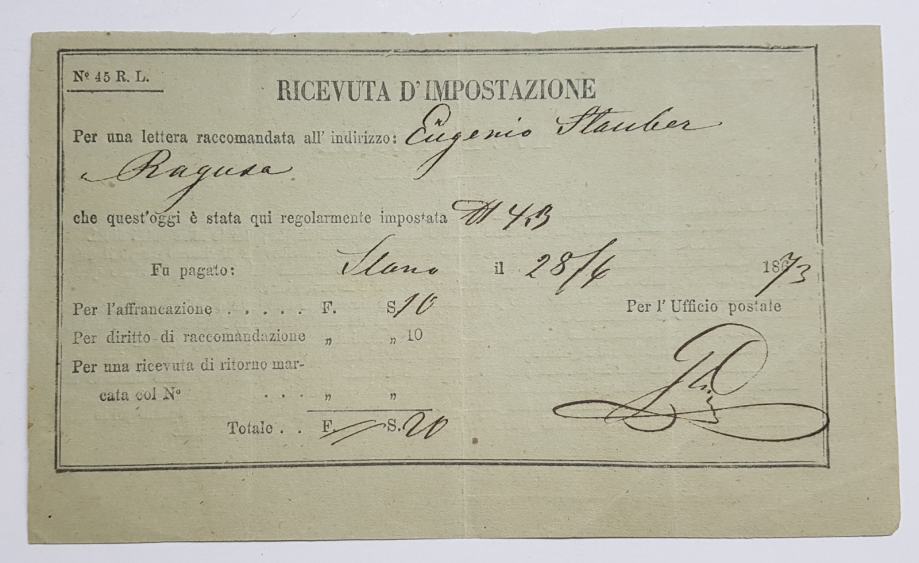 Nº 45 R. L.
RICEVUTA D'IMPOSTAZIONE
Per una lettera raccomandata all' indirizzo: Eugenio Stauber
a Ragusa
che quest'oggi è stata qui regolarmente impostata N 43
Fu pagato: Slano il 28/6 1873
Per l'affrancazione . . . . . F. S. 10
Per l' Ufficio postale
Per diritto di raccomandazione „ „ 10
Per una ricevuta di ritorno mar-
cata col Nº . . . „ „
Totale . . F. S. 20